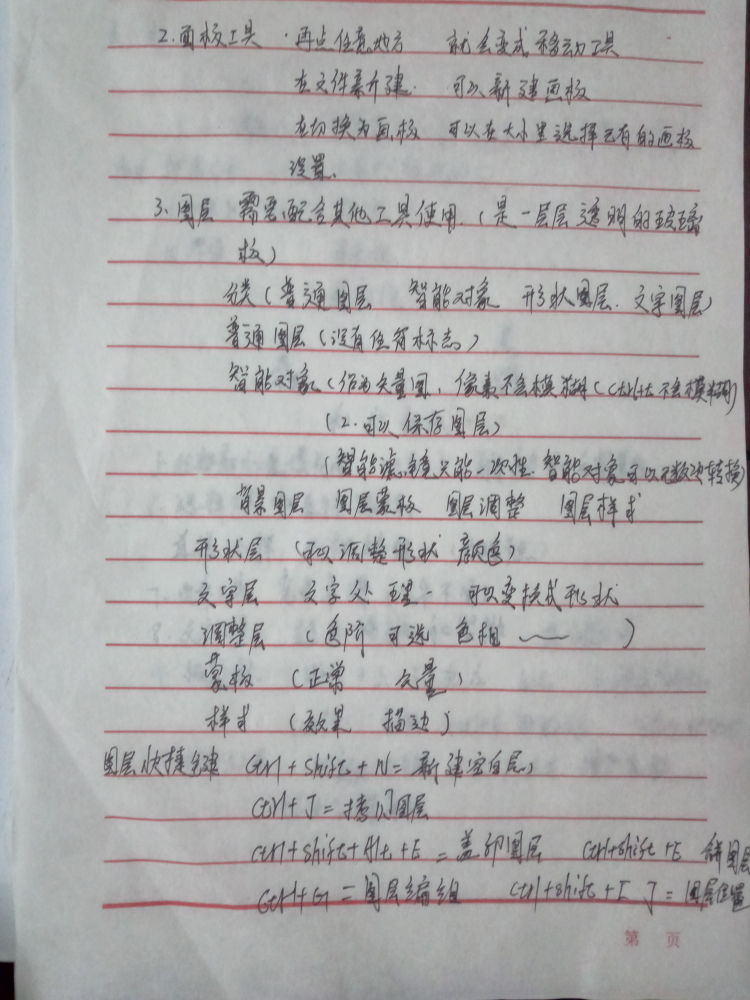 2.画板工具 · 再点任意地方 就会变成移动工具
在文件新建. 可以新建画板
在切换为画板 可以在大小里选择已有的画板
设置.
3.图层 需要配合其他工具使用.(是一层层透明的玻璃
板)
分类(普通图层 智能对象 形状图层. 文字图层)
普通图层(没有任何标志)
智能对象(作为矢量图, 像素不会模糊(Ctrl+t不会模糊)
(2.可以保存图层)
(智能滤镜只能一次性.智能对象可以无数次转换)
背景图层 图层蒙板 图层调整 图层样式
形状层 (可以调整形状 颜色)
文字层 文字处理- 可以变换成形状
调整层 (色阶 可选 色相 )
蒙板 (正常 矢量)
样式 (效果 描边)
图层快捷键 Ctrl+Shift+N=新建空白层)
Ctrl+J=拷贝图层
Ctrl+Shift+Alt+E=盖印图层 Ctrl+Shift+E 拼图层
Ctrl+G=图层编组 Ctrl+Shift+[ ]=图层位置
第 页